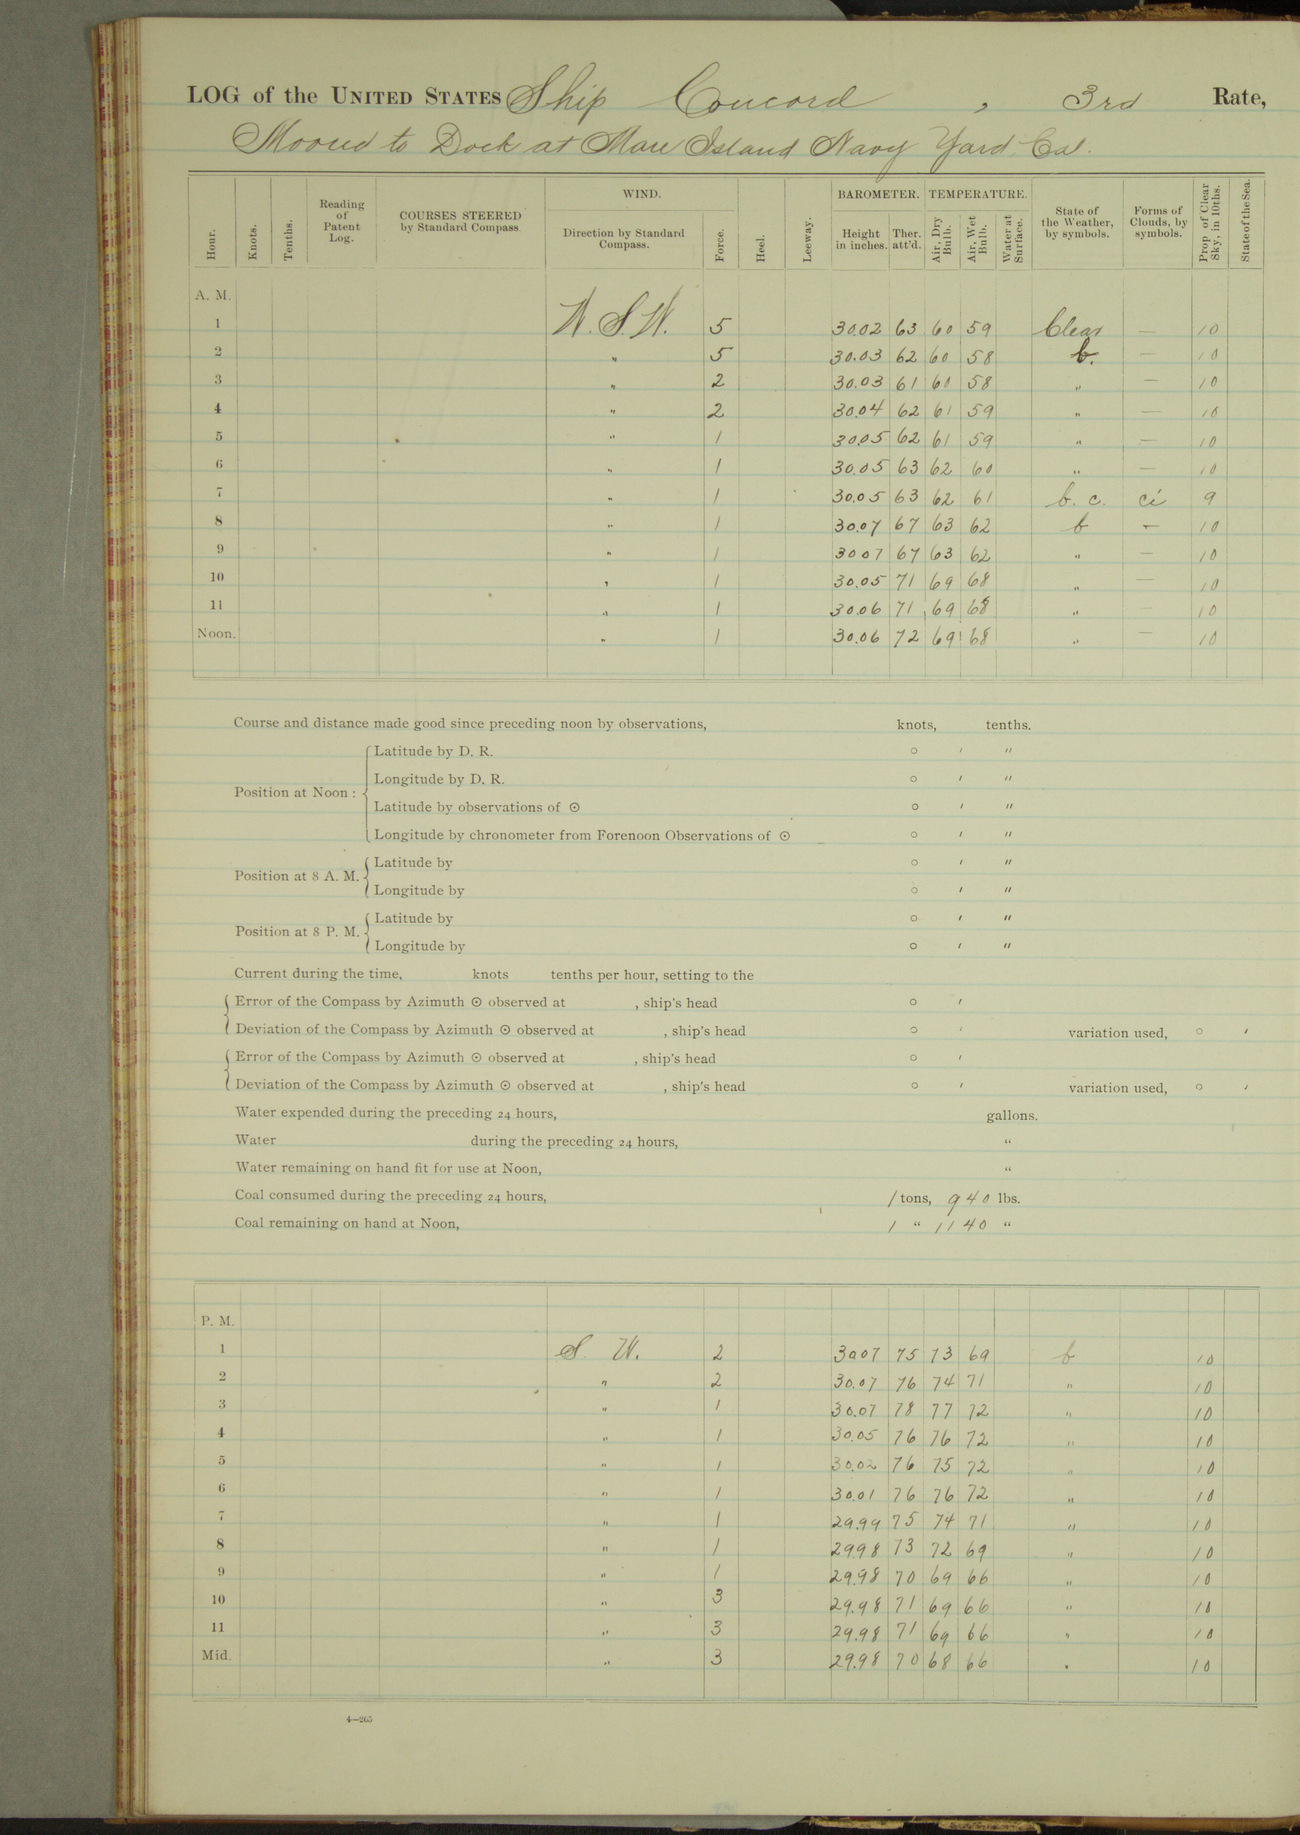 LOG of the UNITED STATES Ship Concord , 3rd Rate,
Moored to Dock at Mare Island Navy Yard, Cal.
Hour. Knots. Tenths. Reading of Patent Log. COURSES STEERED by Standard Compass WIND. Direction by Standard Compass. Force. Heel. Leeway. BAROMETER. Height in inches. Ther. att'd. TEMPERATURE. Air, Dry Bulb. Air, Wet Bulb. Water at Surface. State of the Weather, by symbols. Forms of Clouds, by symbols. Prop. of Clear Sky, in 10ths. State of the Sea.
A. M.
1 W. S. W. 5 30.02 63 60 59 Clear — 10
2 " 5 30.03 62 60 58 b. — 10
3 " 2 30.03 61 60 58 " — 10
4 " 2 30.04 62 61 59 " — 10
5 " 1 30.05 62 61 59 " — 10
6 " 1 30.05 63 62 60 " — 10
7 " 1 30.05 63 62 61 b. c. ci 9
8 " 1 30.07 67 63 62 b — 10
9 " 1 30 07 67 63 62 " — 10
10 " 1 30.05 71 69 68 " — 10
11 " 1 30.06 71 69 68 " — 10
Noon. " 1 30.06 72 69 68 " — 10
Course and distance made good since preceding noon by observations, knots, tenths.
Position at Noon : Latitude by D. R. ° ′ ″
Longitude by D. R. ° ′ ″
Latitude by observations of ☉ ° ′ ″
Longitude by chronometer from Forenoon Observations of ☉ ° ′ ″
Position at 8 A. M. Latitude by ° ′ ″
Longitude by ° ′ ″
Position at 8 P. M. Latitude by ° ′ ″
Longitude by ° ′ ″
Current during the time, knots tenths per hour, setting to the
Error of the Compass by Azimuth ☉ observed at , ship's head ° ′
Deviation of the Compass by Azimuth ☉ observed at , ship's head ° ′ variation used, ° ′
Error of the Compass by Azimuth ☉ observed at , ship's head ° ′
Deviation of the Compass by Azimuth ☉ observed at , ship's head ° ′ variation used, ° ′
Water expended during the preceding 24 hours, gallons.
Water during the preceding 24 hours, "
Water remaining on hand fit for use at Noon, "
Coal consumed during the preceding 24 hours, 1 tons, 940 lbs.
Coal remaining on hand at Noon, 1 " 1140 "
P. M.
1 S. W. 2 30 07 75 73 69 b 10
2 " 2 30.07 76 74 71 " 10
3 " 1 30.07 78 77 72 " 10
4 " 1 30.05 76 76 72 " 10
5 " 1 30.02 76 75 72 " 10
6 " 1 30.01 76 76 72 " 10
7 " 1 29.99 75 74 71 " 10
8 " 1 29.98 73 72 69 " 10
9 " 1 29.98 70 69 66 " 10
10 " 3 29.98 71 69 66 " 10
11 " 3 29.98 71 69 66 " 10
Mid. " 3 29.98 70 68 66 " 10
4—265